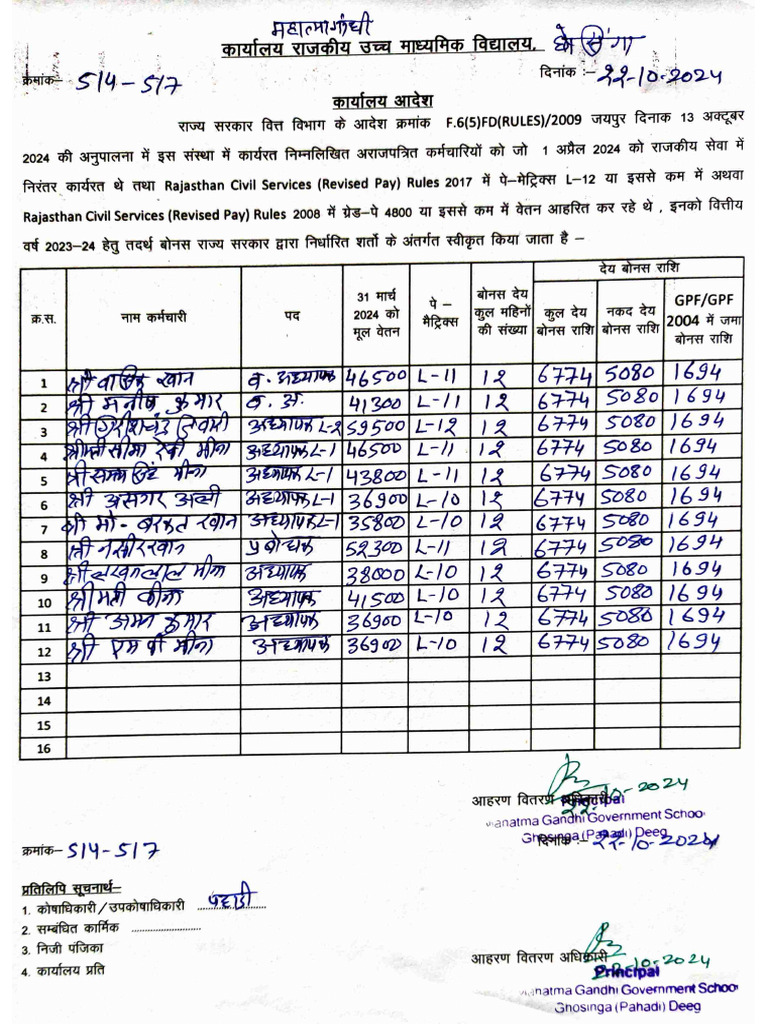 महात्मा गांधी
कार्यालय राजकीय उच्च माध्यमिक विद्यालय, घोसिंगा
क्रमांक– 514-517 दिनांक :– 22-10-2024
कार्यालय आदेश
राज्य सरकार वित्त विभाग के आदेश क्रमांक F.6(5)FD(RULES)/2009 जयपुर दिनाक 13 अक्टूबर
2024 की अनुपालना में इस संस्था में कार्यरत निम्नलिखित अराजपत्रित कर्मचारियों को जो 1 अप्रैल 2024 को राजकीय सेवा में
निरंतर कार्यरत थे तथा Rajasthan Civil Services (Revised Pay) Rules 2017 में पे–मेट्रिक्स L–12 या इससे कम में अथवा
Rajasthan Civil Services (Revised Pay) Rules 2008 में ग्रेड–पे 4800 या इससे कम में वेतन आहरित कर रहे थे , इनको वित्तीय
वर्ष 2023–24 हेतु तदर्थ बोनस राज्य सरकार द्वारा निर्धारित शर्तो के अंतर्गत स्वीकृत किया जाता है –
क्र.स. नाम कर्मचारी पद 31 मार्च 2024 को मूल वेतन पे – मैट्रिक्स बोनस देय कुल महिनों की संख्या देय बोनस राशि
कुल देय बोनस राशि नकद देय बोनस राशि GPF/GPF 2004 में जमा बोनस राशि
1 श्री खान व. अध्यापक 46500 L-11 12 6774 5080 1694
2 श्री मनीष कुमार व. अ. 41300 L-11 12 6774 5080 1694
3 श्री गिरीशचंद्र तिवारी अध्यापक L-2 59500 L-12 12 6774 5080 1694
4 श्रीमती सीमा देवी मीना अध्यापक L-1 46500 L-11 12 6774 5080 1694
5 श्री सिंह मीना अध्यापक L-1 43800 L-11 12 6774 5080 1694
6 श्री असगर अली अध्यापक L-1 36900 L-10 12 6774 5080 1694
7 श्री मो- बरकत खान अध्यापक L-1 35800 L-10 12 6774 5080 1694
8 श्री नसीर खान प्रबोधक 52300 L-11 12 6774 5080 1694
9 श्री लखनलाल मीना अध्यापक 38000 L-10 12 6774 5080 1694
10 श्रीमती अध्यापक 41500 L-10 12 6774 5080 1694
11 श्री अमन कुमार अध्यापक 36900 L-10 12 6774 5080 1694
12 श्री एम पी मीना अध्यापक 36900 L-10 12 6774 5080 1694
13
14
15
16
22-10-2024
आहरण वितरण अधिकारी Principal
Mahatma Gandhi Government School
Ghosinga (Pahadi) Deeg
क्रमांक– 514-517 दिनांक :– 22-10-2024
प्रतिलिपि सूचनार्थ–
1. कोषाधिकारी/उपकोषाधिकारी पहाडी
2. सम्बंधित कार्मिक ........................
3. निजी पंजिका
4. कार्यालय प्रति
आहरण वितरण अधिकारी
22-10-2024
Principal
Mahatma Gandhi Government School
Ghosinga (Pahadi) Deeg